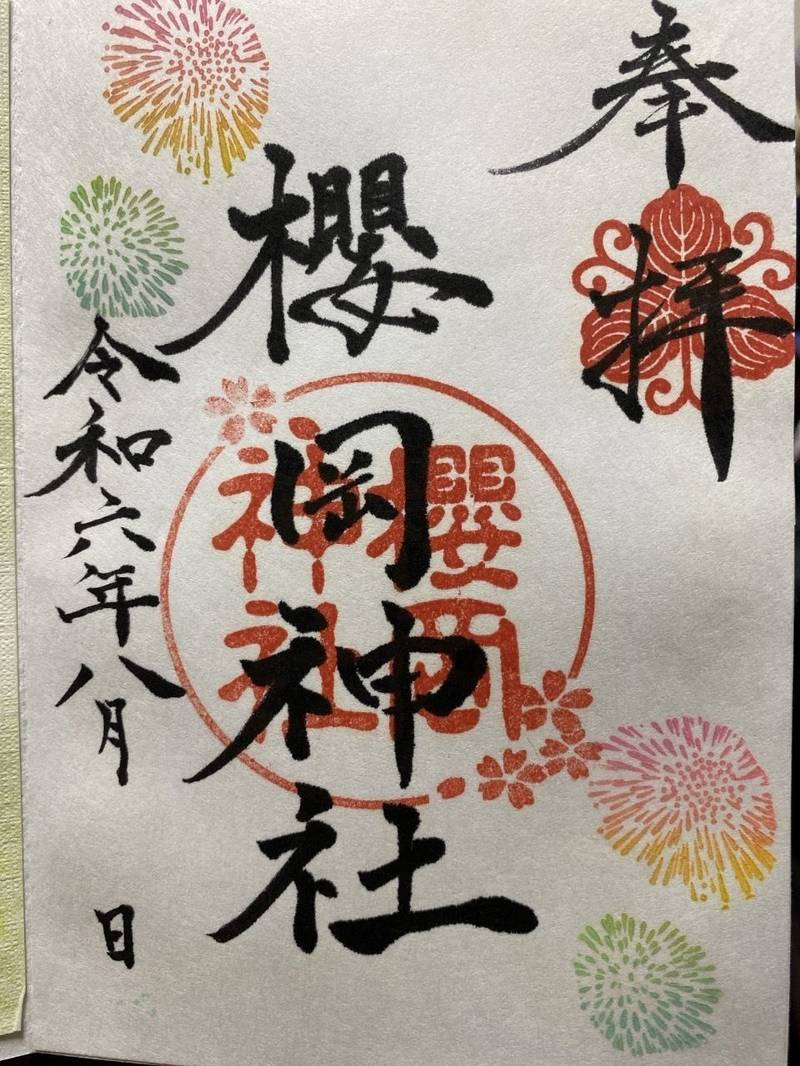 奉拝
櫻岡神社
櫻岡
神社
令和六年八月 日